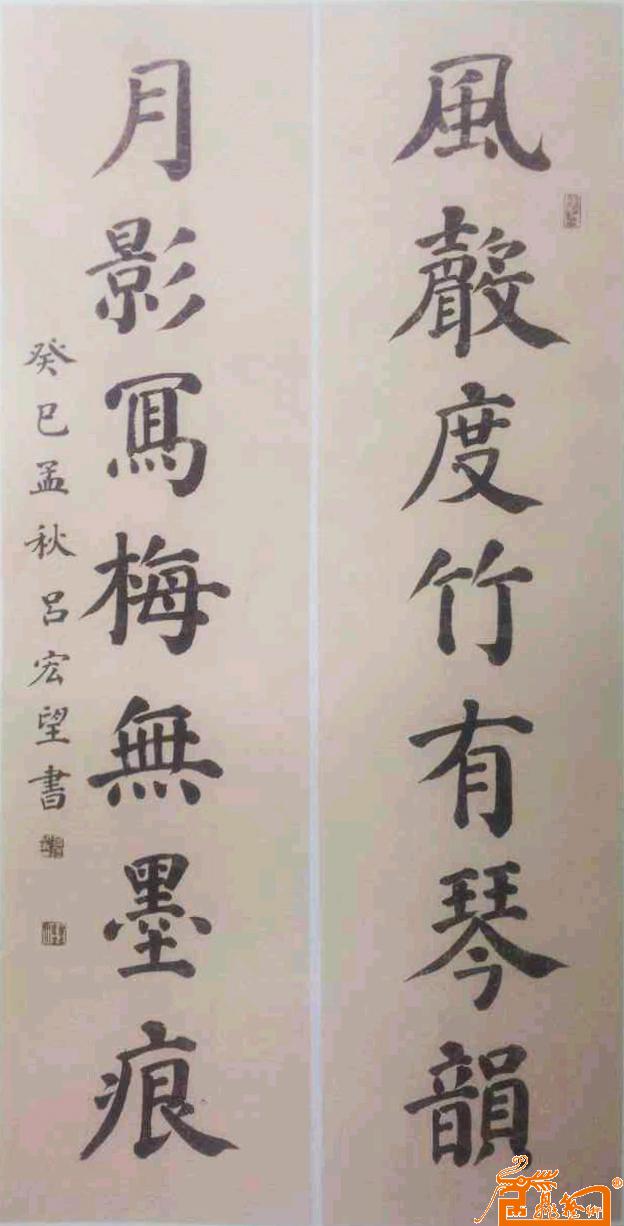 風聲度竹有琴韻
月影寫梅無墨痕
癸巳孟秋呂宏望書